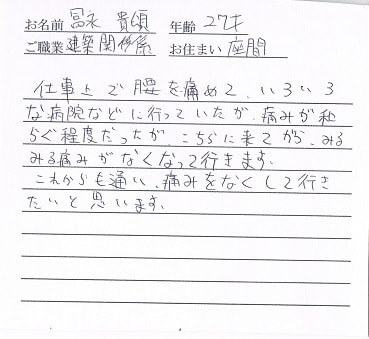 お名前 冨永 貴頌 年齢 27才
ご職業 建築関係 お住まい 座間
仕事上で腰を痛めて、いろいろ
な病院などに行っていたが、痛みが和
らぐ程度だったが、こちらに来てから、みる
みる痛みがなくなって行きます。
これからも通い、痛みをなくして行き
たいと思います。